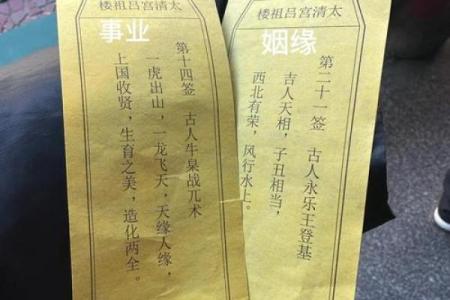 太清宫吕祖楼
事业
第十四签 古人牛皋战兀术
一虎出山，一龙飞天，天缘人缘，
上国收贤，生育之美，造化两全。
太清宫吕祖楼
姻缘
第二十一签 古人永乐王登基
吉人天相，子丑相当，
西北有荣，风行水上。